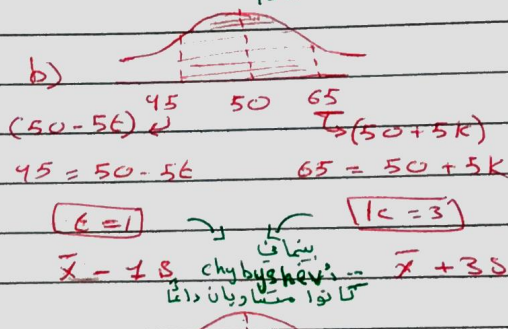 b)
45 50 65
(50-5t) (50+5k)
45 = 50-5t 65 = 50+5k
t=1 k=3
بينما في
x̄ - 1s chybyshev's -- x̄ + 3s
كانوا متساويان دائمًا